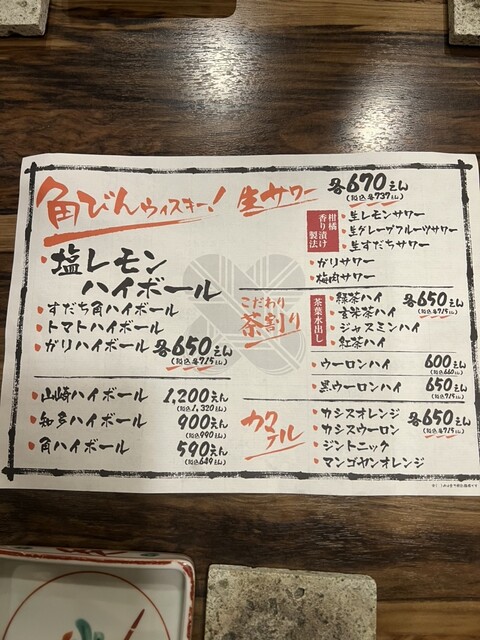 角びんウィスキー!
・塩レモン
ハイボール
・すだち角ハイボール
・トマトハイボール
・ガリハイボール 各650えん
(税込各715えん)
・山崎ハイボール 1,200えん
(税込1,320えん)
・知多ハイボール 900えん
(税込990えん)
・角ハイボール 590えん
(税込649えん)
生サワー 各670えん
(税込各737えん)
柑橘
香り漬け
製法
・生レモンサワー
・生グレープフルーツサワー
・生すだちサワー
・ガリサワー
・梅肉サワー
こだわり
茶割り
茶葉水出し
・緑茶ハイ
・玄米茶ハイ
・ジャスミンハイ
・紅茶ハイ
各650えん
(税込各715えん)
・ウーロンハイ 600えん
(税込660えん)
・黒ウーロンハイ 650えん
(税込715えん)
カクテル
・カシスオレンジ
・カシスウーロン
・ジントニック
・マンゴヤンオレンジ
各650えん
(税込各715えん)